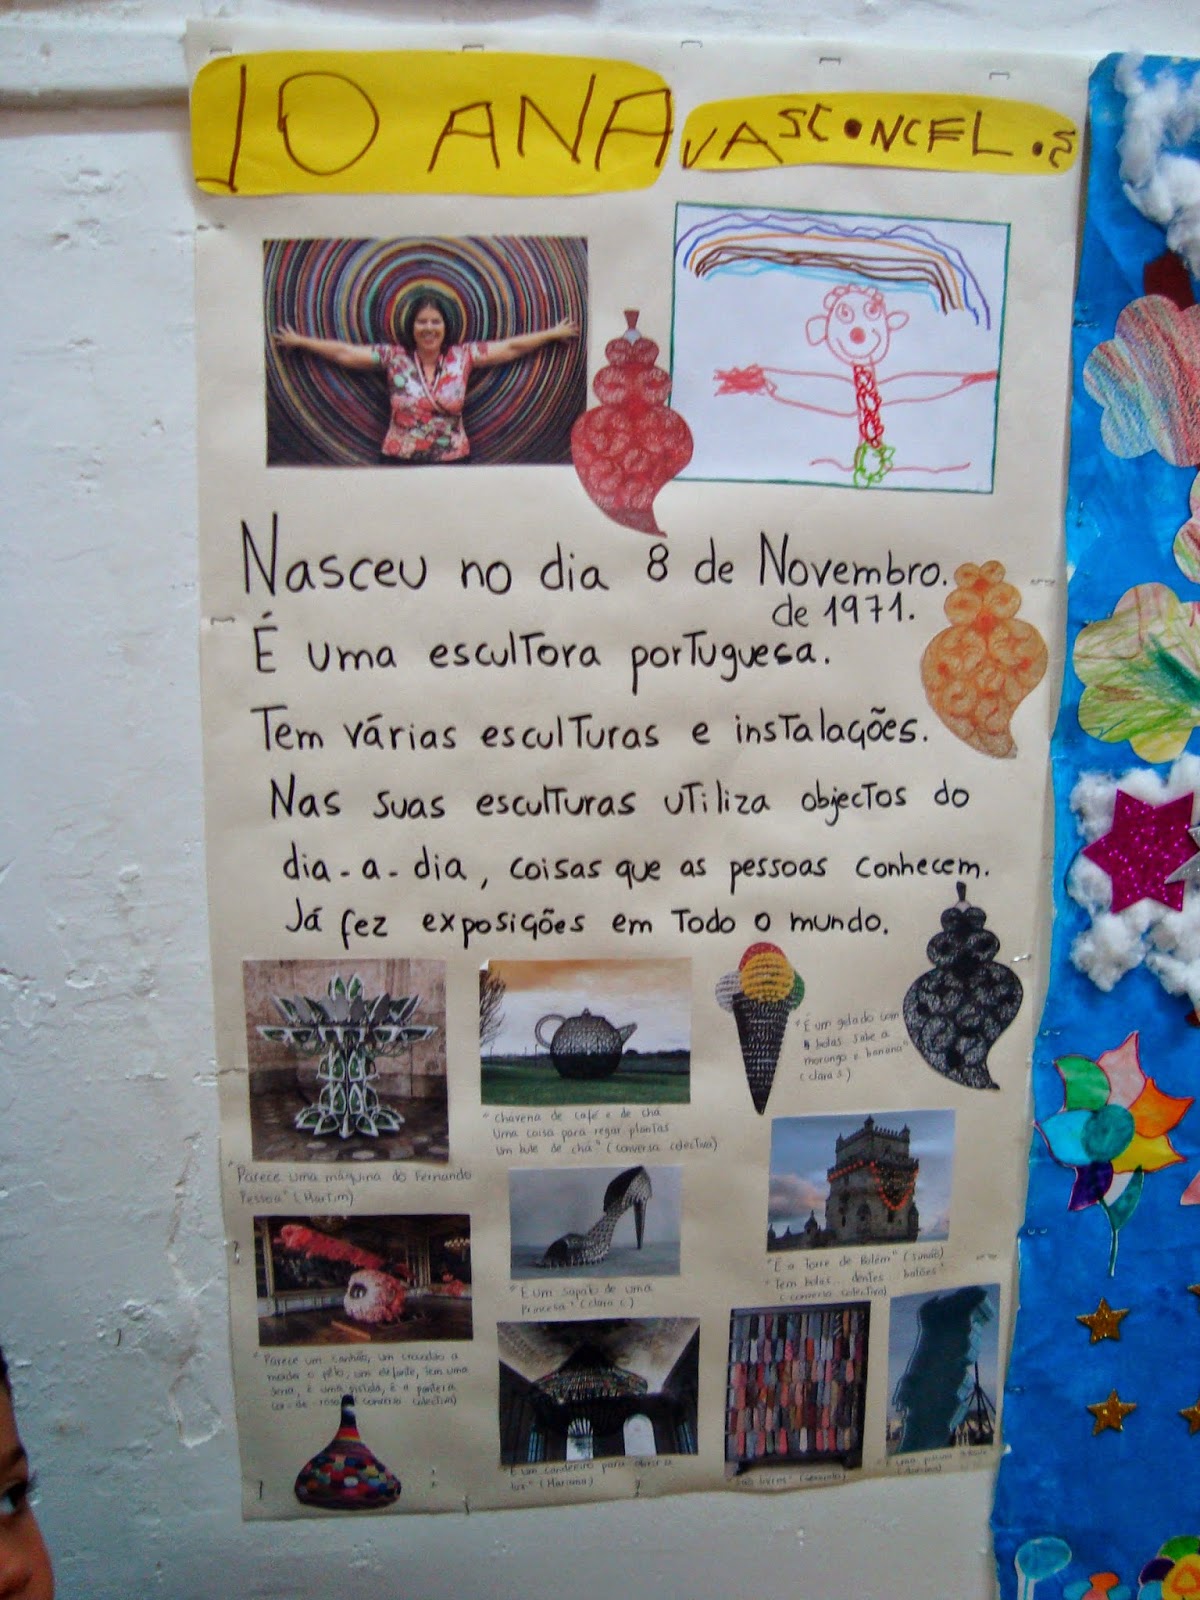 JOANA VASCONCELOS
Nasceu no dia 8 de Novembro.
de 1971.
É uma escultora portuguesa.
Tem várias esculturas e instalações.
Nas suas esculturas utiliza objectos do
dia-a-dia, coisas que as pessoas conhecem.
Já fez exposições em todo o mundo.
"É um gelado com
bolas sabe a
morango e banana"
(Clara S.)
"Chávena de café e de chá
Uma coisa para regar plantas
Um bule de chá" (conversa colectiva)
"Parece uma máquina do Fernando
Pessoa" (Martim)
"É a Torre de Belém" (Simão)
"Tem bolas... dentes balões"
(conversa colectiva)
"É um sapato de uma
Princesa" (Clara C.)
"Parece um canhão, um crocodilo a
um elefante, tem uma
é uma pistola, é a pantera
cor-de-rosa" (conversa colectiva)
"É um candeeiro para
luz" (Mariana)
"É uma
(Mariana)